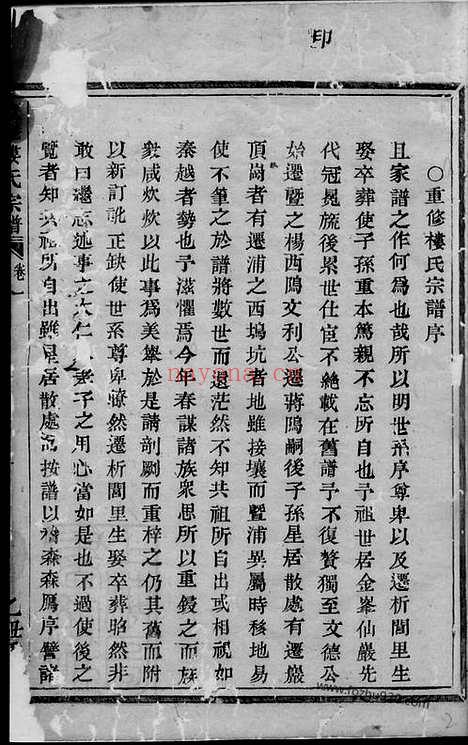 印
〇重修樓氏宗譜序
且家譜之作何為也哉所以明世系序尊卑以及遷析閭里生
娶卒葬使子孫重本篤親不忘所自也予祖世居金峯仙巖先
代冠晃旒後累世仕宦不絶載在舊譜予不復贅獨至文德公
始遷暨之楊西陽文利公遷蔣陽嗣後子孫星居散處有遷巖
頂崗者有遷浦之西塢坑者地雖接壤而暨浦異屬時移地易
使不筆之於譜將數世而還茫然不知共祖所自出或相視如
秦越者勢也予滋懼焉今春謀諸族衆思所以重鋟之而族
衆咸炊炊以此事為美舉於是請剞劂而重梓之仍其舊而附
以新訂訛正缺使世系尊卑瞭然遷析閭里生娶卒葬昭然非
敢曰繼志述事之大仁孝子之用心當如是也不過使後之
覽者知共祖所自出雖星居散處而按譜以稽森森鴈序譬諸
樓氏宗譜
卷一
nayona.cn
www.fozhu920.com
2